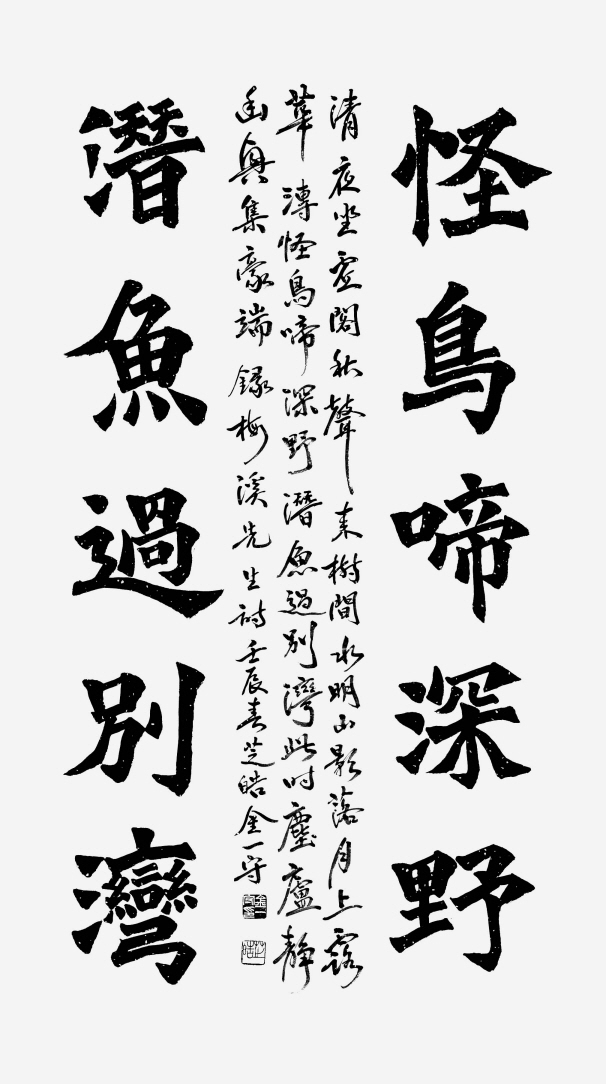 怪鳥啼深野
清夜坐虛閣秋聲來樹間水明山影落月上露
華漙怪鳥啼深野潛魚過別灣此時塵廬靜
幽興集豪端錄梅溪先生詩壬辰春芝皓金一守
潛魚過別灣